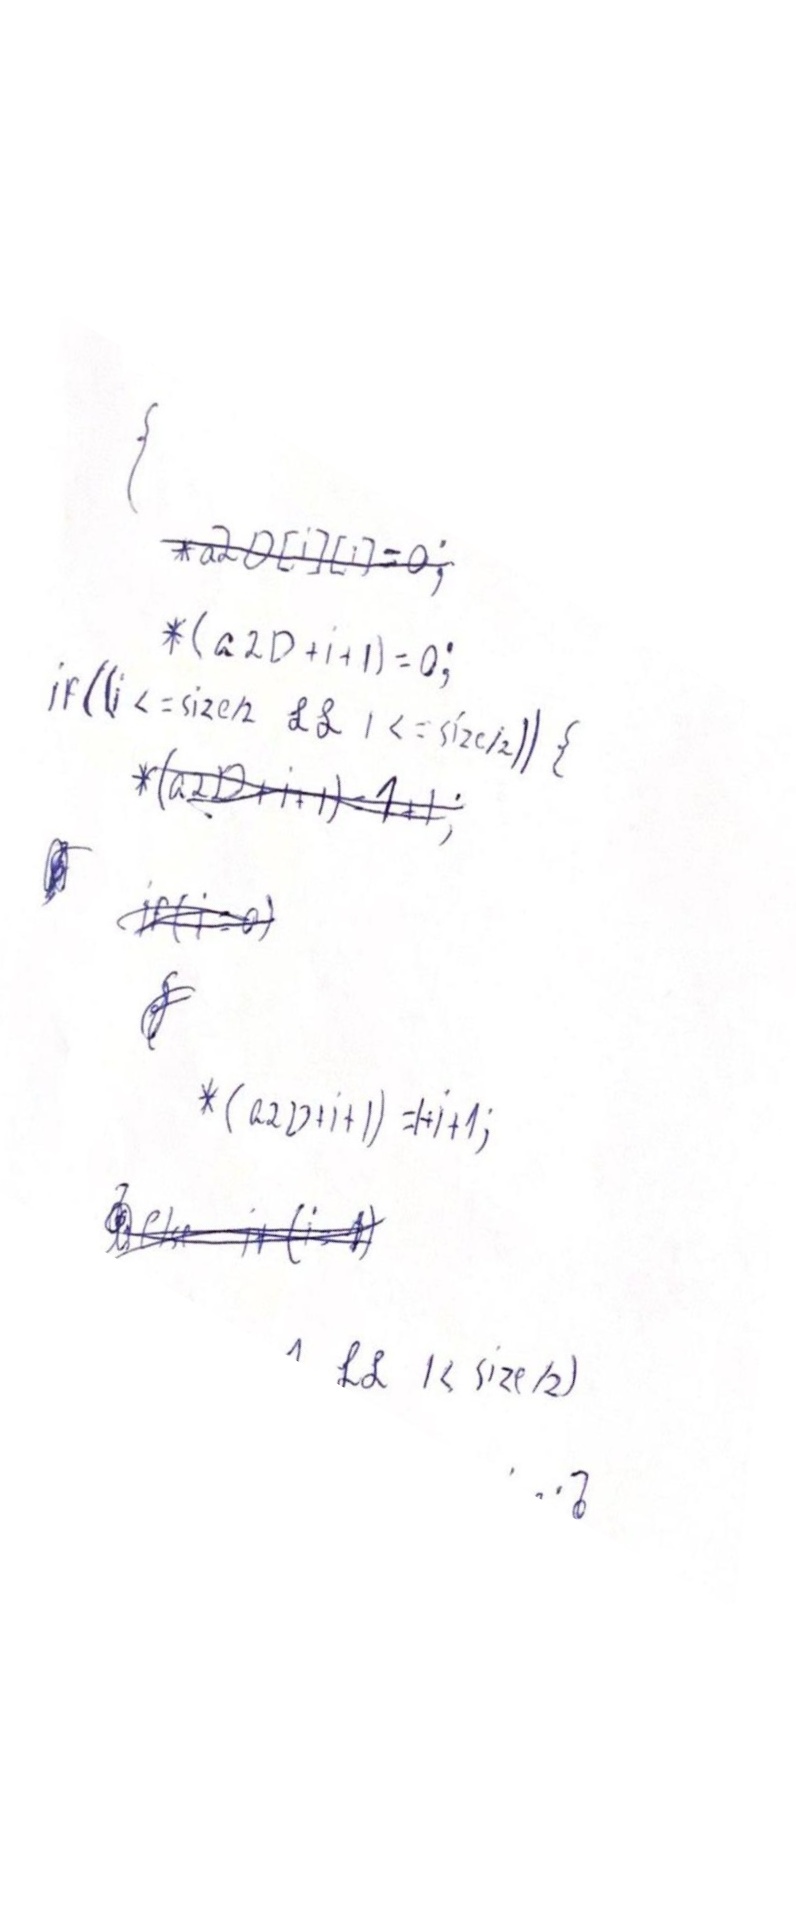 {
*a2D[i][i]=0;
*(a2D+i+1)=0;
if((i<=size/2 && 1<=size/2)){
*(a2D+i+1)=1+1;
if(i=0)
{
*(a2D+i+1)=1+i+1;
else if(i=1)
1 && 1< size/2)